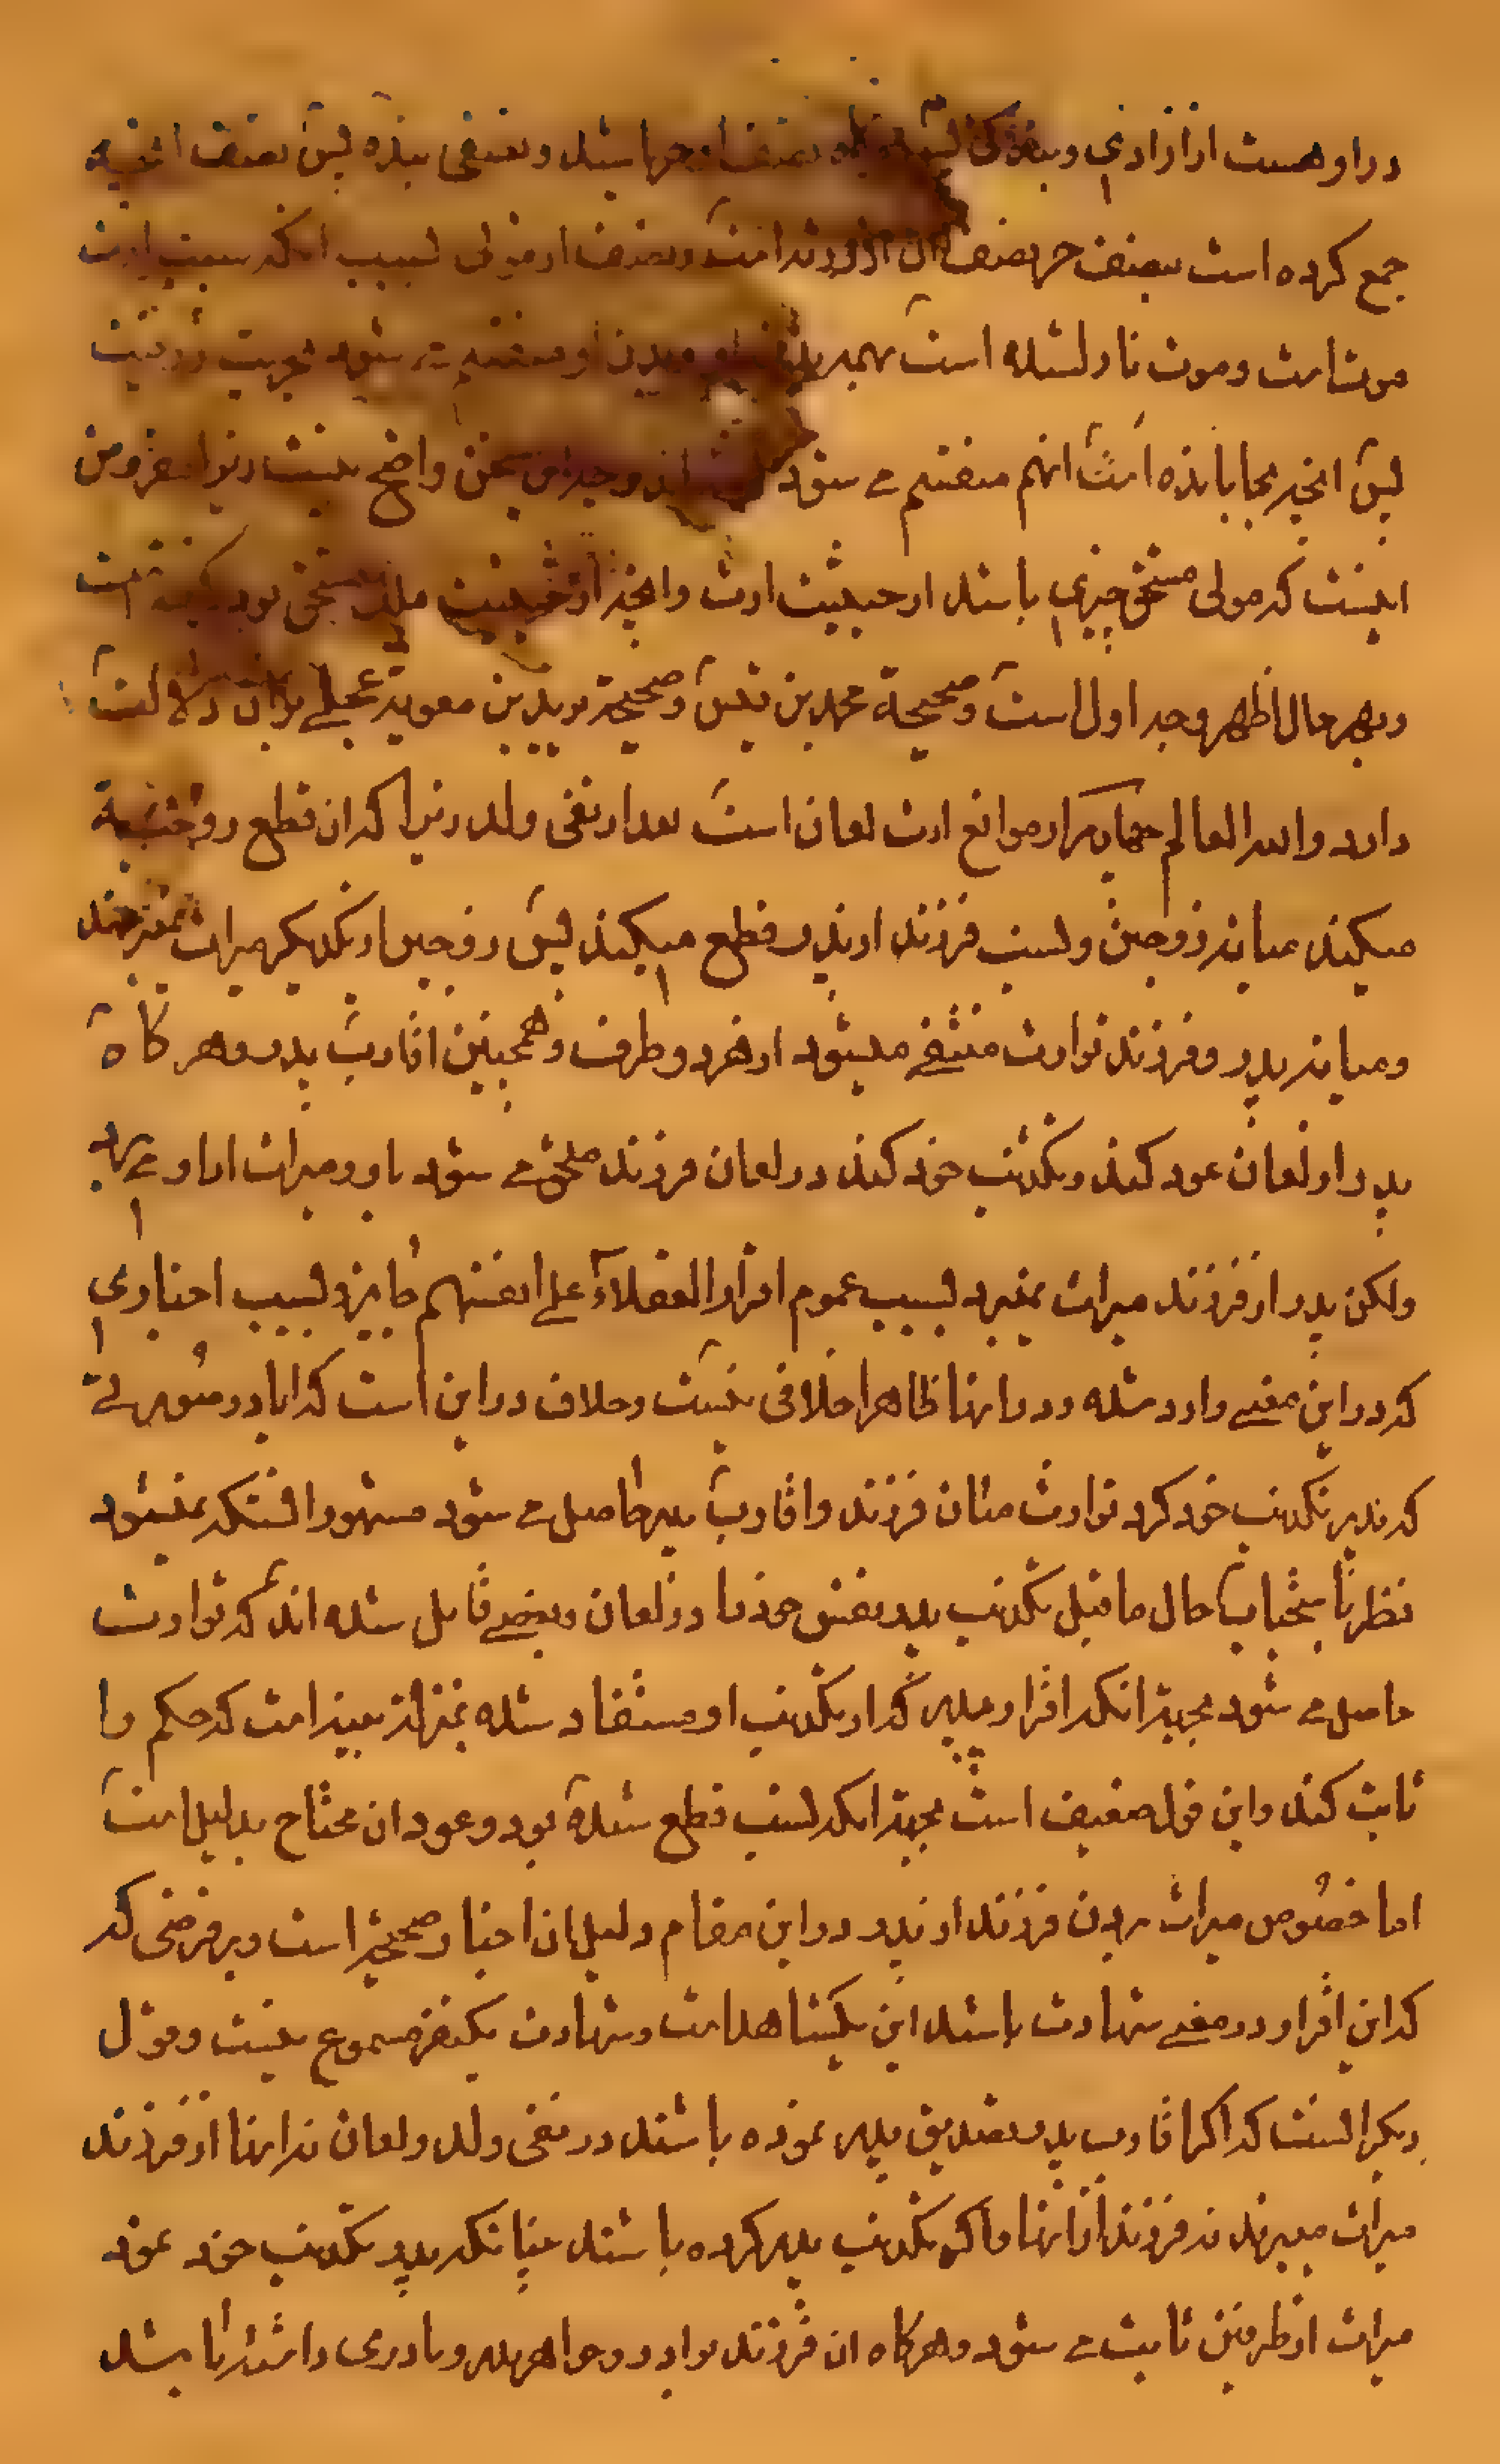 در او هست از ازادی و بندکی پس هرکاه نصف او حر باشد و نصفی بنده پس نصف انچه
جمع کرده است بنصف حر نصف ان از ورثه است و نصف از مولی بسبب انکه سبب ارث
موتست و موت نازل شده است بهمه بدن او و بدن او منقسم می شود بحریت و رقیت
پس انچه بجا مانده است انهم منقسم می شود و وجه این سخن واضح نیست زیرا مفروض
اینست که مولی مستحق چیزی باشد از حیثیت ارث و انچه از حیثیت ملک مستحق بود کرفته است
و بهر حال اظهر وجه اول است و صحیحة محمد بن قیس و صحیحة برید بن معویة عجلی بران دلالت
دارد والله العالم چهارم از موانع ارث لعان است بعد از نفی ولد زیرا که ان قطع زوجیة
میکند میانه زوجین و نسب فرزند از پدر قطع میکند پس زوجین از یکدیکر میراث نمیبرند
و میانه پدر و فرزند توارث منتفی میشود از هر دو طرف و همچنین اقارب پدر و هرکاه
پدر از لعان عود کند و تکذیب خود کند در لعان فرزند ملحق می شود باو و میراث از او می برد
ولکن پدر از فرزند میراث نمیبرد بسبب عموم اقرار العقلاء علی انفسهم جایز و بسبب اخباری
که در این معنی وارد شده و در اینها ظاهرا خلافی نیست و خلاف در این است که ایا در صورتی
که پدر تکذیب خود کرد توارث میان فرزند و اقارب پدر حاصل می شود مشهور انستکه نمیشود
نظر باستصحاب حال ما قبل تکذیب پدر نفس خود را در لعان و بعضی قایل شده اند که توارث
حاصل می شود بجهة انکه اقرار پدر که از تکذیب او مستفاد شده بمنزلة بینه است که حکم را
ثابت کند و این قول ضعیف است بجهة انکه نسب قطع شده بود و عود ان محتاج بدلیل است
اما خصوص میراث بردن فرزند از پدر در این مقام دلیل ان اخبار صحیحة است و بر فرضی که
که این اقرار در معنی شهادت باشد این یکشاهد است و شهادت یکنفر مسموع نیست و قول
دیکر انست که اکر اقارب پدر تصدیق پدر نموده باشند در نفی ولد و لعان نه اینها از فرزند
میراث میبرند نه فرزند از اینها و اکر تکذیب پدر کرده باشند چنانکه پدر تکذیب خود نمود
میراث از طرفین ثابت می شود و هرکاه ان فرزند برادر و خواهر پدر و مادری داشته باشد